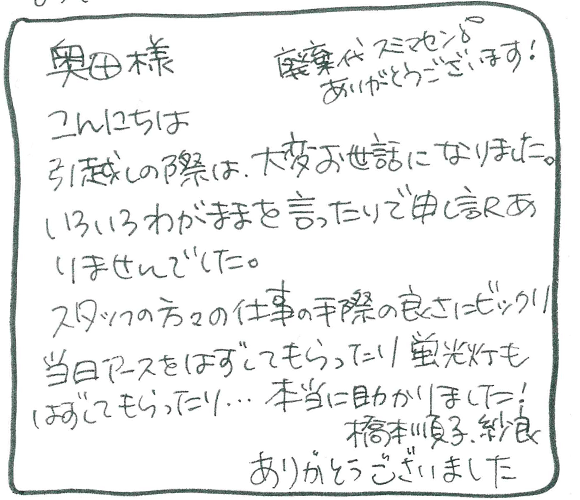 奥田様
廃棄代 スミマセン
ありがとうございます!
こんにちは
引越しの際は、大変お世話になりました。
いろいろわがままを言ったりで申し訳あ
りませんでした。
スタッフの方々の仕事の手際の良さにビックリ
当日アースをはずしてもらったり蛍光灯も
はずしてもらったり… 本当に助かりました!
橋本順子、紗良
ありがとうございました